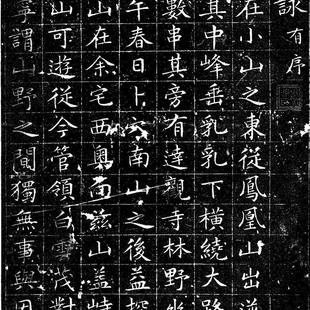 詠有序
在小山之東從鳳凰山出逆
其中峰垂乳乳下橫繞大路
數串其旁有達觀寺林野坐
午春日卜穴南山之後益探
山在余宅西奥面茲山蓋峙
山可遊從今管領白雲茂對
享謂山野之閒獨無事與因